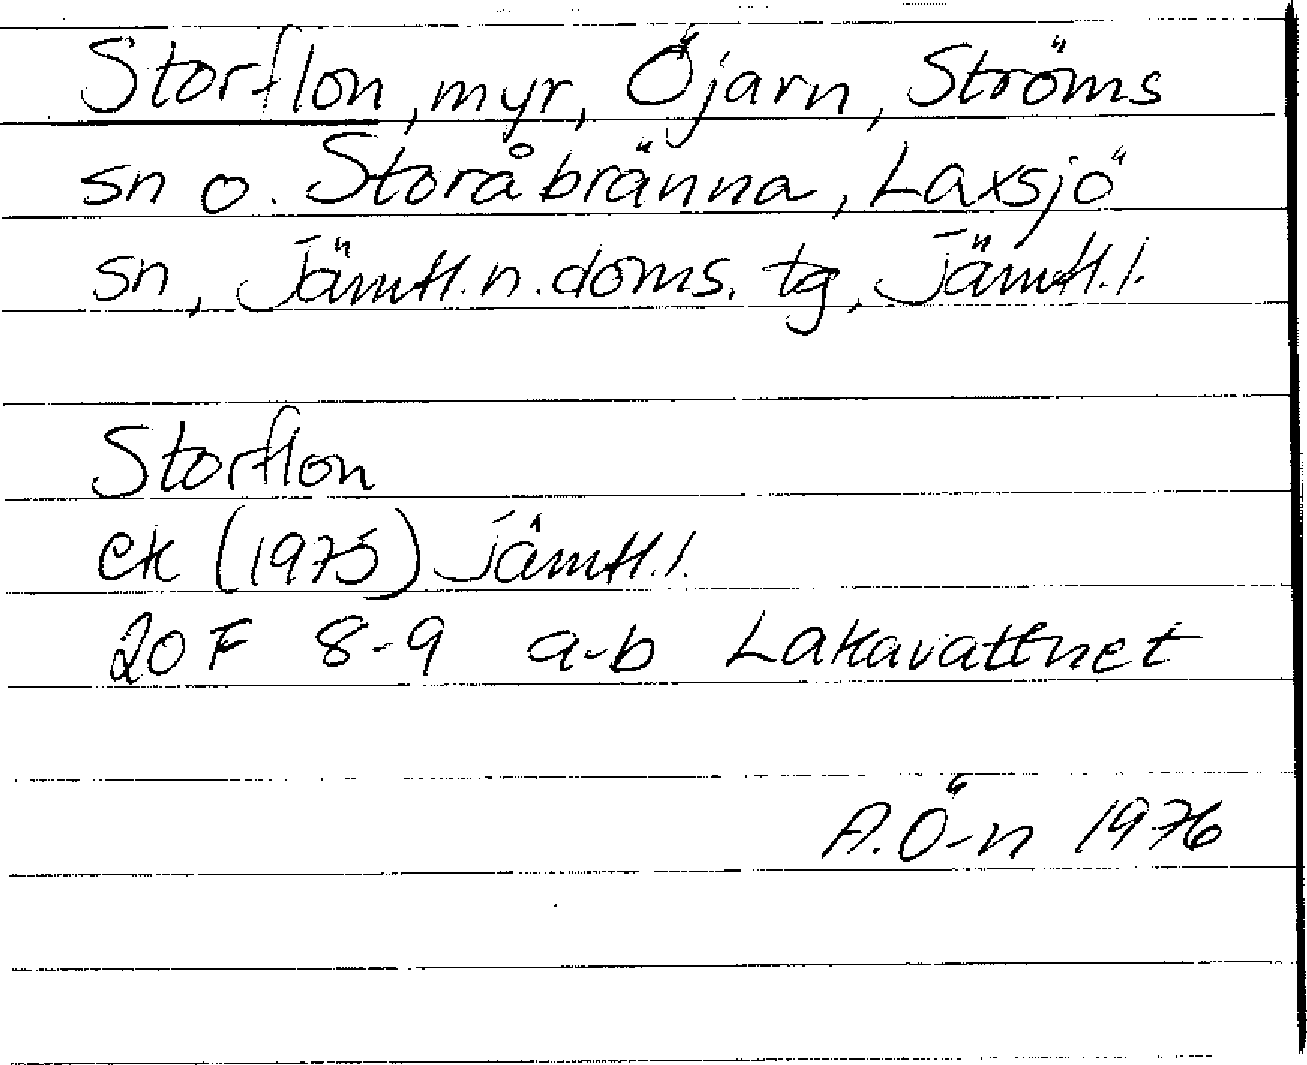 Storflon, myr, Öjarn, Ströms
sn o. Storåbränna, Laxsjö
sn, Jämtl. n. doms. tg, Jämtl. l.
Storflon
ek (1975) Jämtl. l.
20 F 8-9 a-b Lakavattnet
A. Ö-n 1976